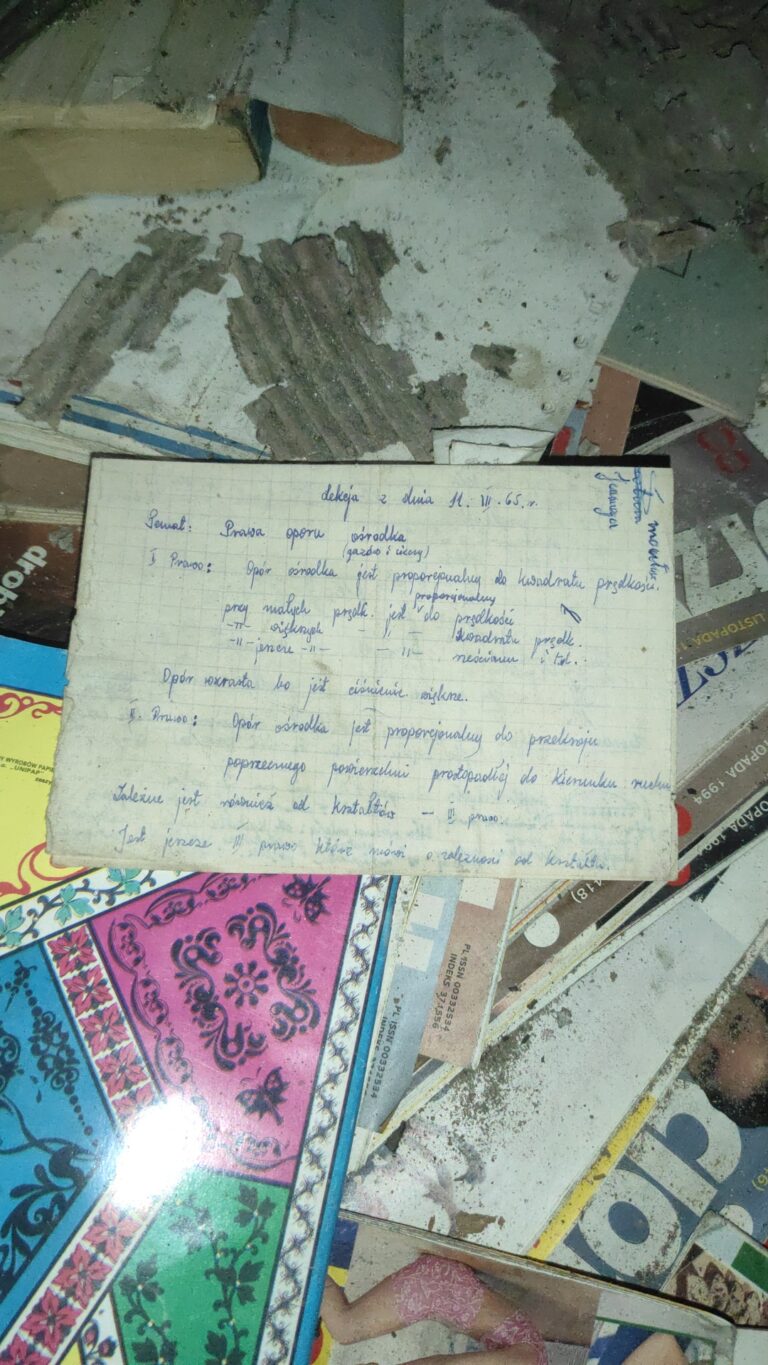 Lekcja z dnia 11. III. 65. r.
Temat: Prawa oporu ośrodka
(gazów i cieczy)
I Prawo: Opór ośrodka jest proporcjonalny do kwadratu prędkości.
proporcjonalny
przy małych prędk. jest do prędkości
-"- większych - " - kwadratu prędk.
-"- jeszcze -"- - " - sześcianu i td.
Opór wzrasta bo jest ciśnienie większe.
II Prawo: Opór ośrodka jest proporcjonalny do przekroju
poprzecznego powierzchni prostopadłej do kierunku ruchu
Zależne jest również od kształtów — III prawo.
Jest jeszcze III prawo które mówi o zależności od kształtu.
8
LISTOPADA 1
LISTOPADA 1994
PL ISSN 00332534
INDEKS 371556
PL ISSN 00332534
"UNIPAP"